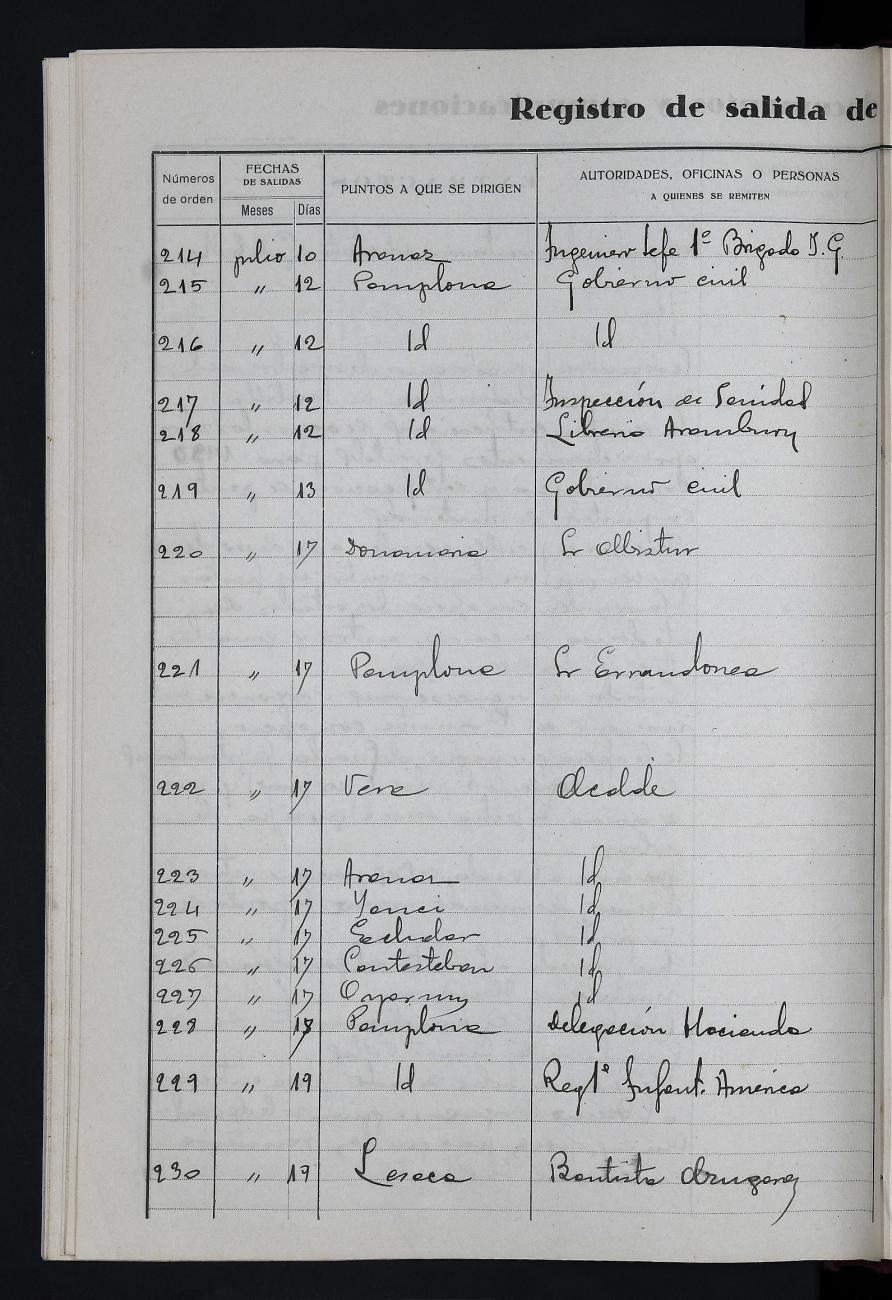 Registro de salida de
Números de orden FECHAS DE SALIDAS Meses Días PUNTOS A QUE SE DIRIGEN AUTORIDADES, OFICINAS O PERSONAS A QUIENES SE REMITEN
214 julio 10 Aranaz Ingeniero Jefe 1ª Brigada I. G.
215 " 12 Pamplona Gobierno civil
216 " 12 Id Id
217 " 12 Id Inspección de Sanidad
218 " 12 Id Libreria Aramburu
219 " 13 Id Gobierno civil
220 " 17 Donamaria Sr
221 " 17 Pamplona Sr Errandonea
222 " 17 Vera Alcalde
223 " 17 Aranaz Id
224 " 17 Yanci Id
225 " 17 Echalar Id
226 " 17 Santesteban Id
227 " 17 Oyarzun Id
228 " 18 Pamplona Delegación Hacienda
229 " 19 Id Regtº Infant. América
230 " 19 Lesaca Bautista